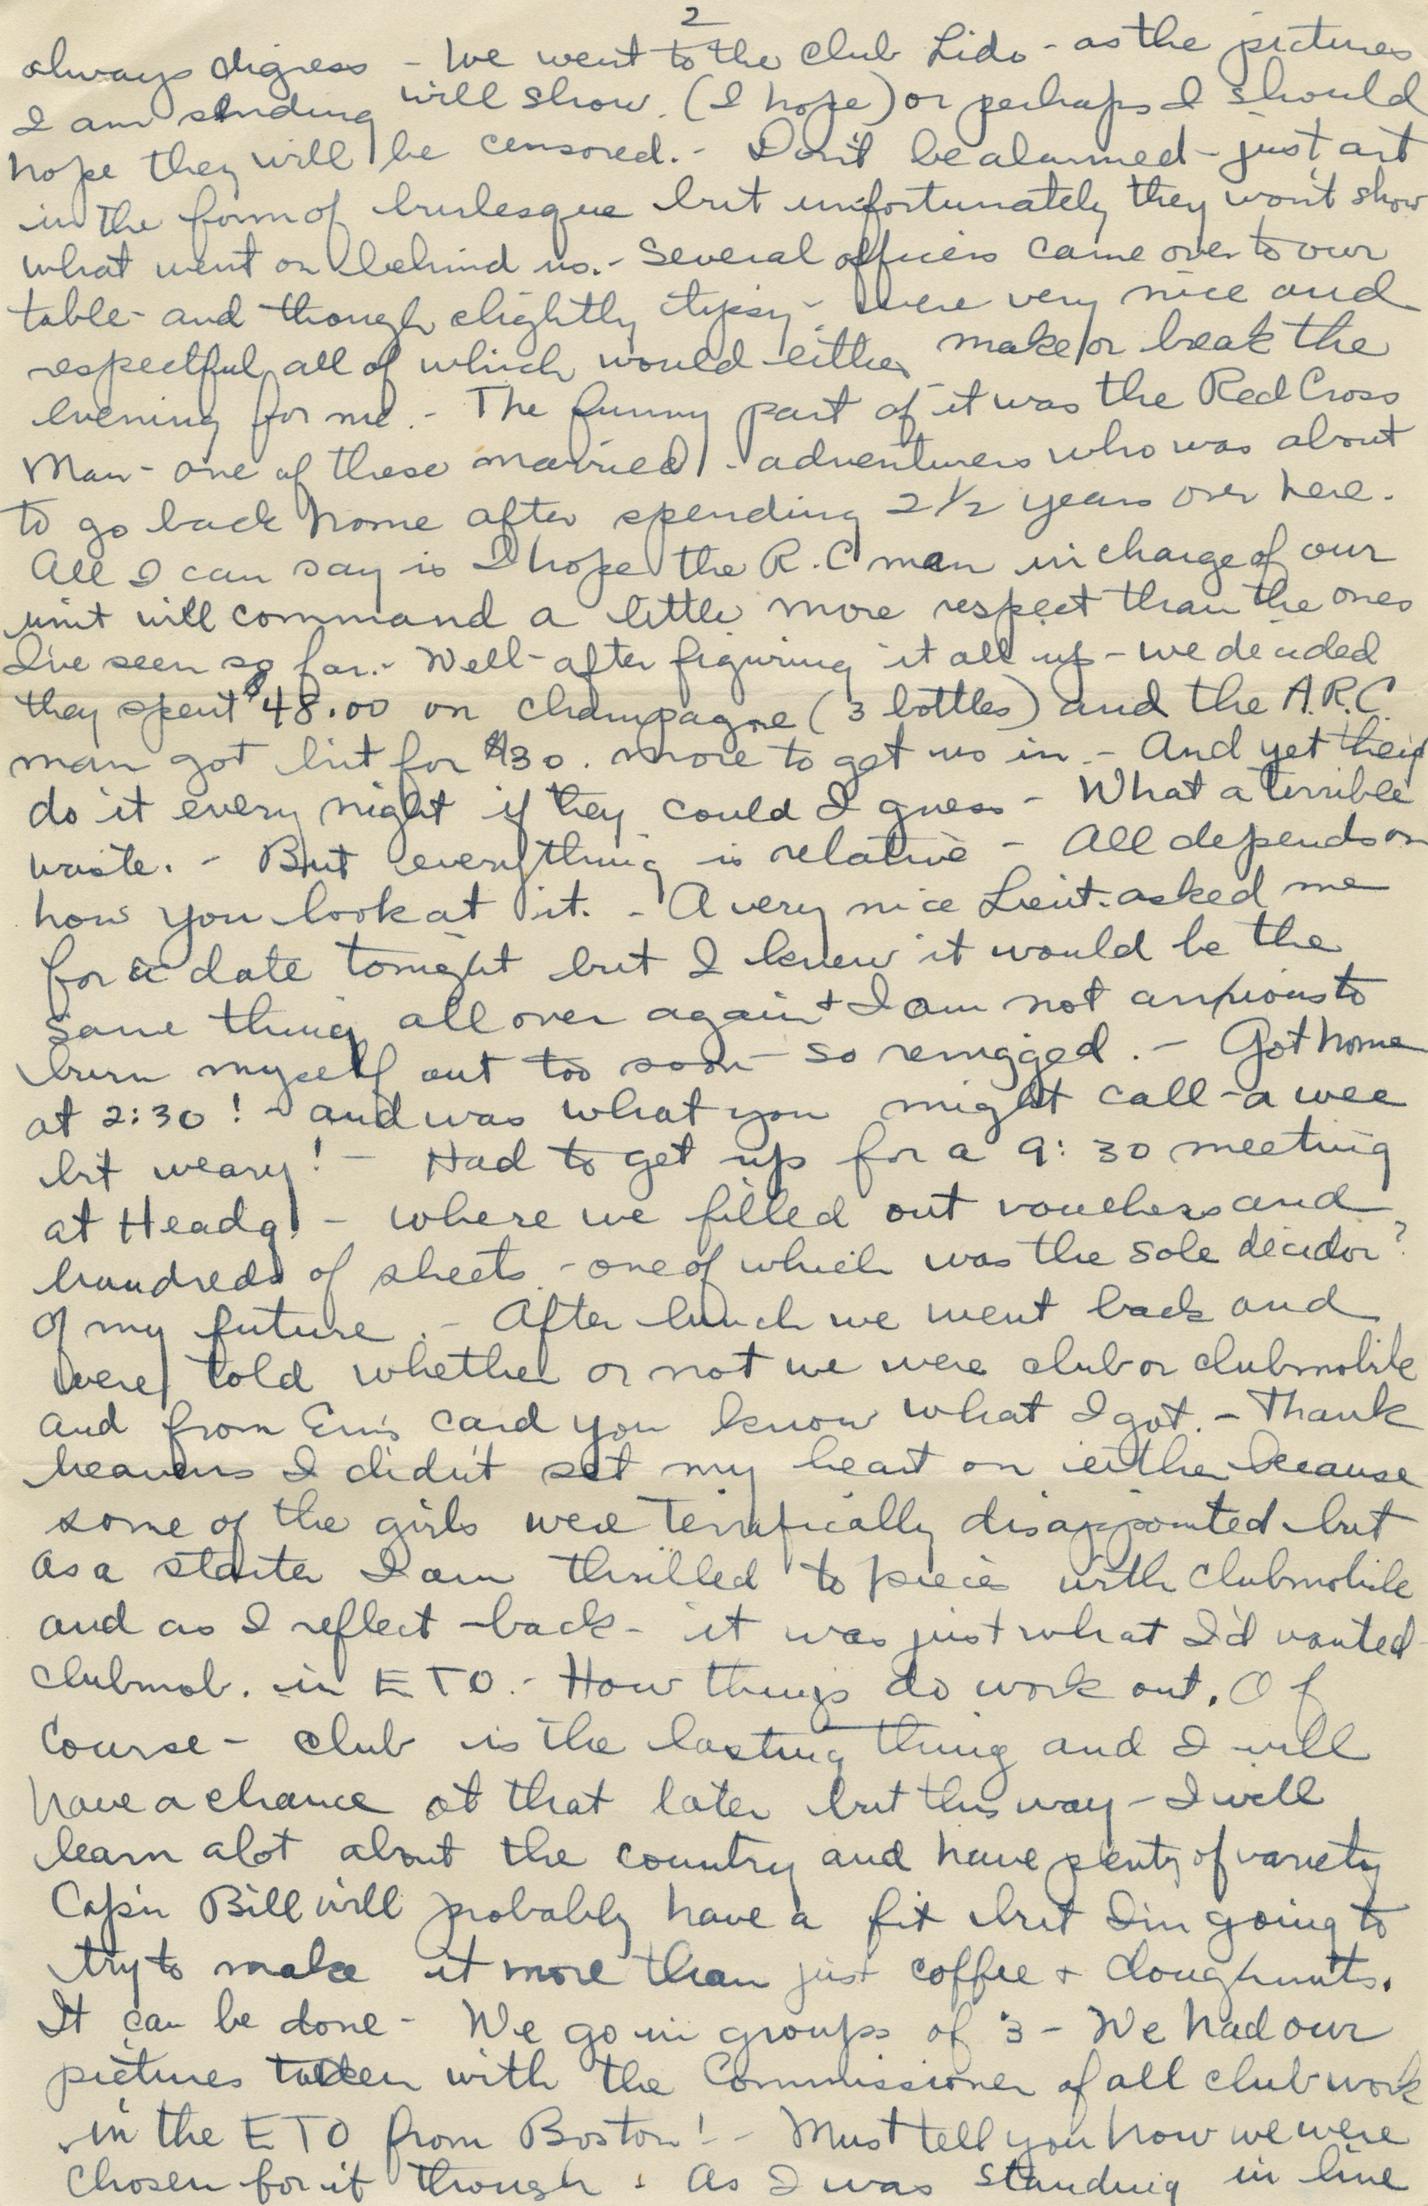 2
always digress - We went to the club Lido - as the pictures
I am sending will show. (I hope) or perhaps I should
hope they will be censored. - Don't be alarmed - just art
in the form of burlesque but unfortunately they won't show
what went on behind us. - Several officers came over to our
table - and though slightly tipsy - were very nice and
respectful all of which would either make or break the
evening for me. - The funny part of it was the Red Cross
Man - one of these married - adventurers who was about
to go back home after spending 2 1/2 years over here.
All I can say is I hope the R.C man in charge of our
unit will command a little more respect than the ones
I've seen so far. - Well - after figuring it all up - we decided
they spent $48.00 on champagne (3 bottles) and the A.R.C.
man got hit for $30. more to get us in - And yet they'd
do it every night if they could I guess - What a terrible
waste. - But everything is relative - All depends on
how you look at it. - A very nice Lieut. asked me
for a date tonight but I knew it would be the
same thing all over again + I am not anxious to
burn myself out too soon - so reneged. - Got home
at 2:30! - and was what you might call - a wee
bit weary! - Had to get up for a 9:30 meeting
at Headq. - where we filled out vouchers and
hundreds of sheets - one of which was the sole decidor?
of my future. - After lunch we went back and
were told whether or not we were club or clubmobile
and from Em's card you know what I got. - Thank
heavens I didn't set my heart on either because
some of the girls were terrifically disappointed but
as a starter I am thrilled to pieces with clubmobile
and as I reflect - back - it was just what I'd wanted
clubmob. in ETO. - How things do work out. Of
course - club is the lasting thing and I will
have a chance at that later but this way - I will
learn alot about the country and have plenty of variety
Cap'n Bill will probably have a fit but I'm going to
try to make it more than just coffee + doughnuts.
It can be done - We go in groups of 3 - We had our
pictures taken with the Commissioner of all club work
in the ETO from Boston! - Must tell you how we were
chosen for it though. As I was standing in line